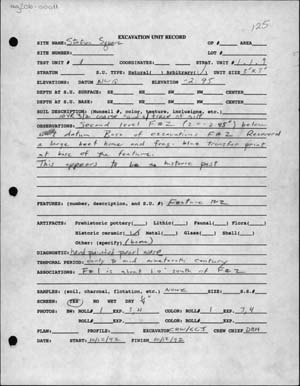 125
EXCAVATION UNIT RECORD
SITE NAME: Station Square OP # AREA
SITE NUMBER: LOT #
TEST UNIT # 1 COORDINATES: STRAT. # 1, 1, 9
STRATUM: S.U. TYPE: Natural( ) Arbitrary( ) UNIT SIZE 5'X5'
ELEVATIONS: NWQ -2.95
DEPTH AT S.U. SURFACE: NE SE SW NW
DEPTH AT S.U. BASE: NE SE SW NW
SOIL DESCRIPTION: (Munsell #, color, texture, inclusions, etc.)
coarse sand w/ trace of silt
OBSERVATIONS: Second level F#2 below
datum. Base of excavations F#2. Recovered
a large beef bone and frag. blue transfer print
at base of the feature.
This appears to be an historic post
FEATURES: (number, description, and S.U. #) Feature #2
ARTIFACTS: Prehistoric pottery( ) Lithic( ) Faunal( ) Flora( )
Historic ceramic( ) Metal( ) Glass( ) Shell( )
Other: (specify) bone
DIAGNOSTIC: hand painted pearl ware
TEMPORAL PERIOD: early to mid nineteenth century
ASSOCIATIONS: F#1 is about 1.0' south of F#2
SAMPLES: (soil, charcoal, flotation, etc.) None S.U.#
SCREEN: YES NO WET DRY 1/4"
PHOTOS: BW: ROLL# 1 EXP. 3,4 COLOR: ROLL# 1 EXP. 3,4
NO: BW: ROLL# EXP. COLOR: ROLL# EXP.
PLAN: PROFILE: EXCAVATOR CRW/SCJ CREW CHIEF DBH
DATE: START 10/12/92 FINISH 10/12/92